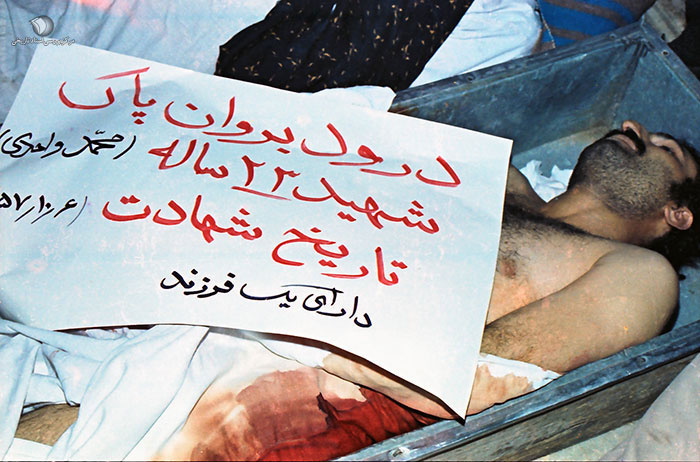 درود بروان پاک
شهید ۲۲ ساله (محمّد واحدی)
تاریخ شهادت (۵۷/۱۰/۶
دارای یک فرزند